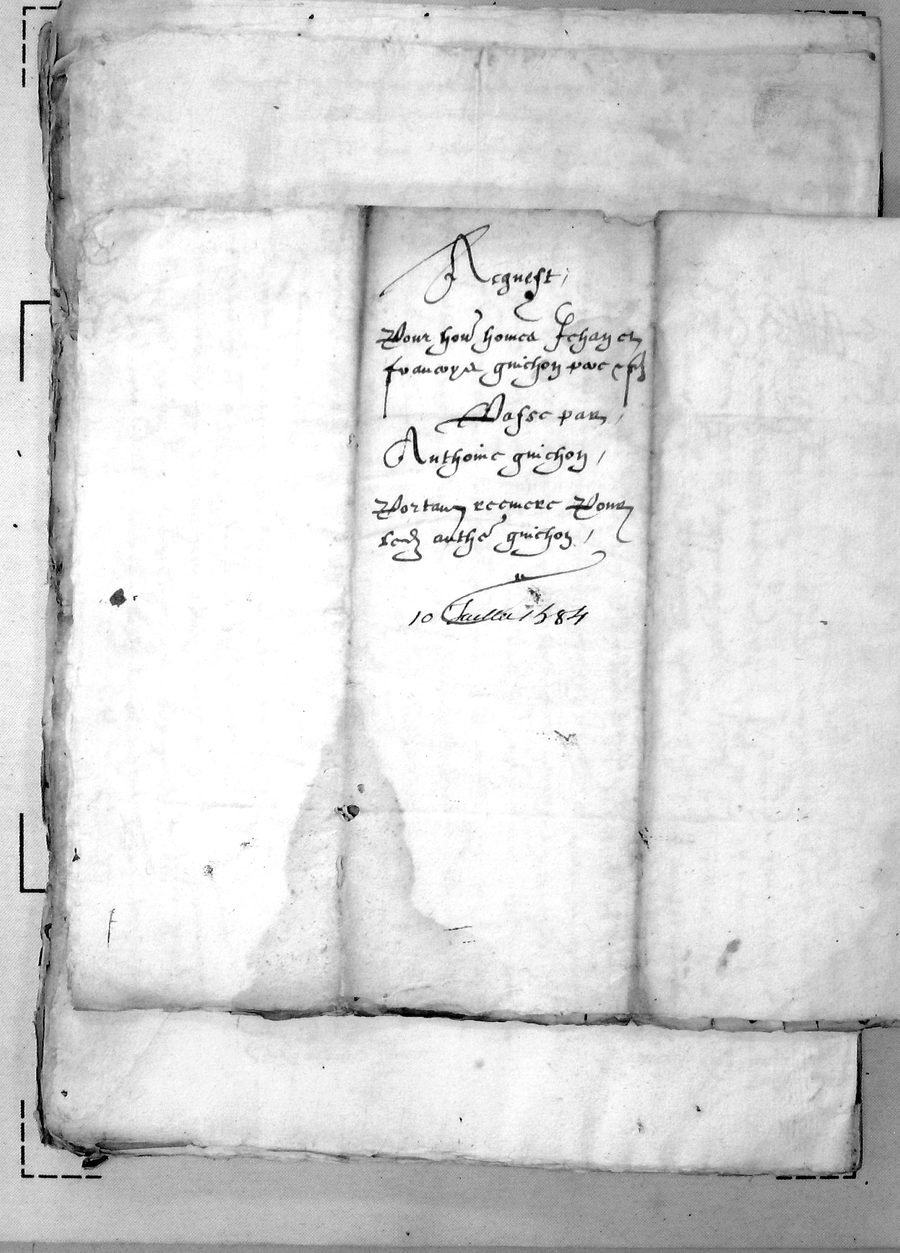 Acquest,
Pour hon homes Jehan et
francoys guichon pere & fils
Passe par,
Anthoine guichon,
Portant reemere Pour
led anthe guichon,
10 Juillet 1584